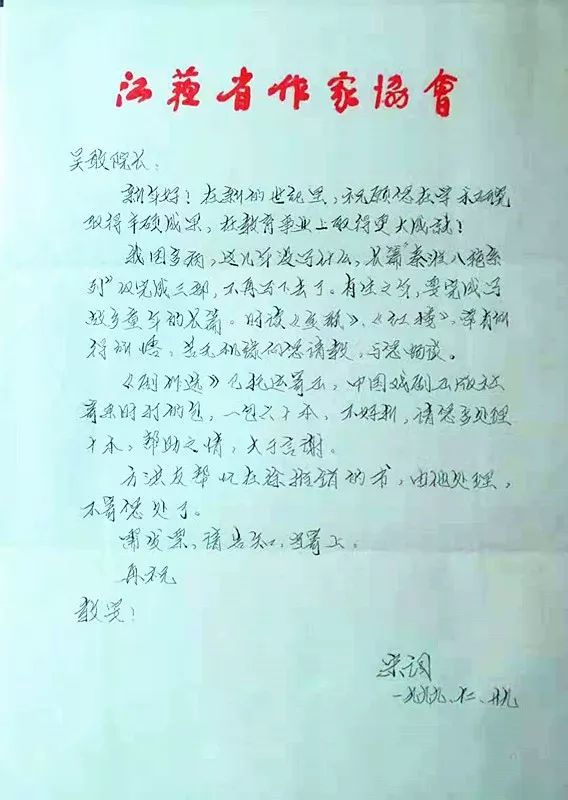 江蘓省作家協會
吴敢院长:
新年好!在新的世纪里,祝愿您在学术研究
取得丰硕成果,在教育事业上取得更大成就!
我因多病,这几年没写什么,长篇"秦淮八艳系
列"仅完成三部,不再写下去了。有生之年,要完成写
故乡童年的长篇。时读《金瓶》、《红楼》,常有所
得所悟,苦无机缘向您请教,与您畅谈。
《剧作选》已托运寄出,中国戏剧出版社
寄来时打的包,一包六十本,不好拆,请您多处理
十本,帮助之情,大于言谢。
方洪友帮忙在徐推销的书,由他处理,
不寄您处了。
需发票,请告知,当寄上。
再祝
教安!
宋词
一九九九、十二、廿九